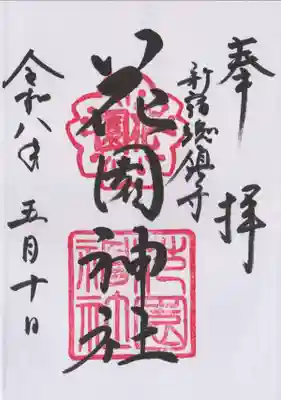 奉拝
新宿総鎮守
花園神社
令和八年 五月十日
花園神社